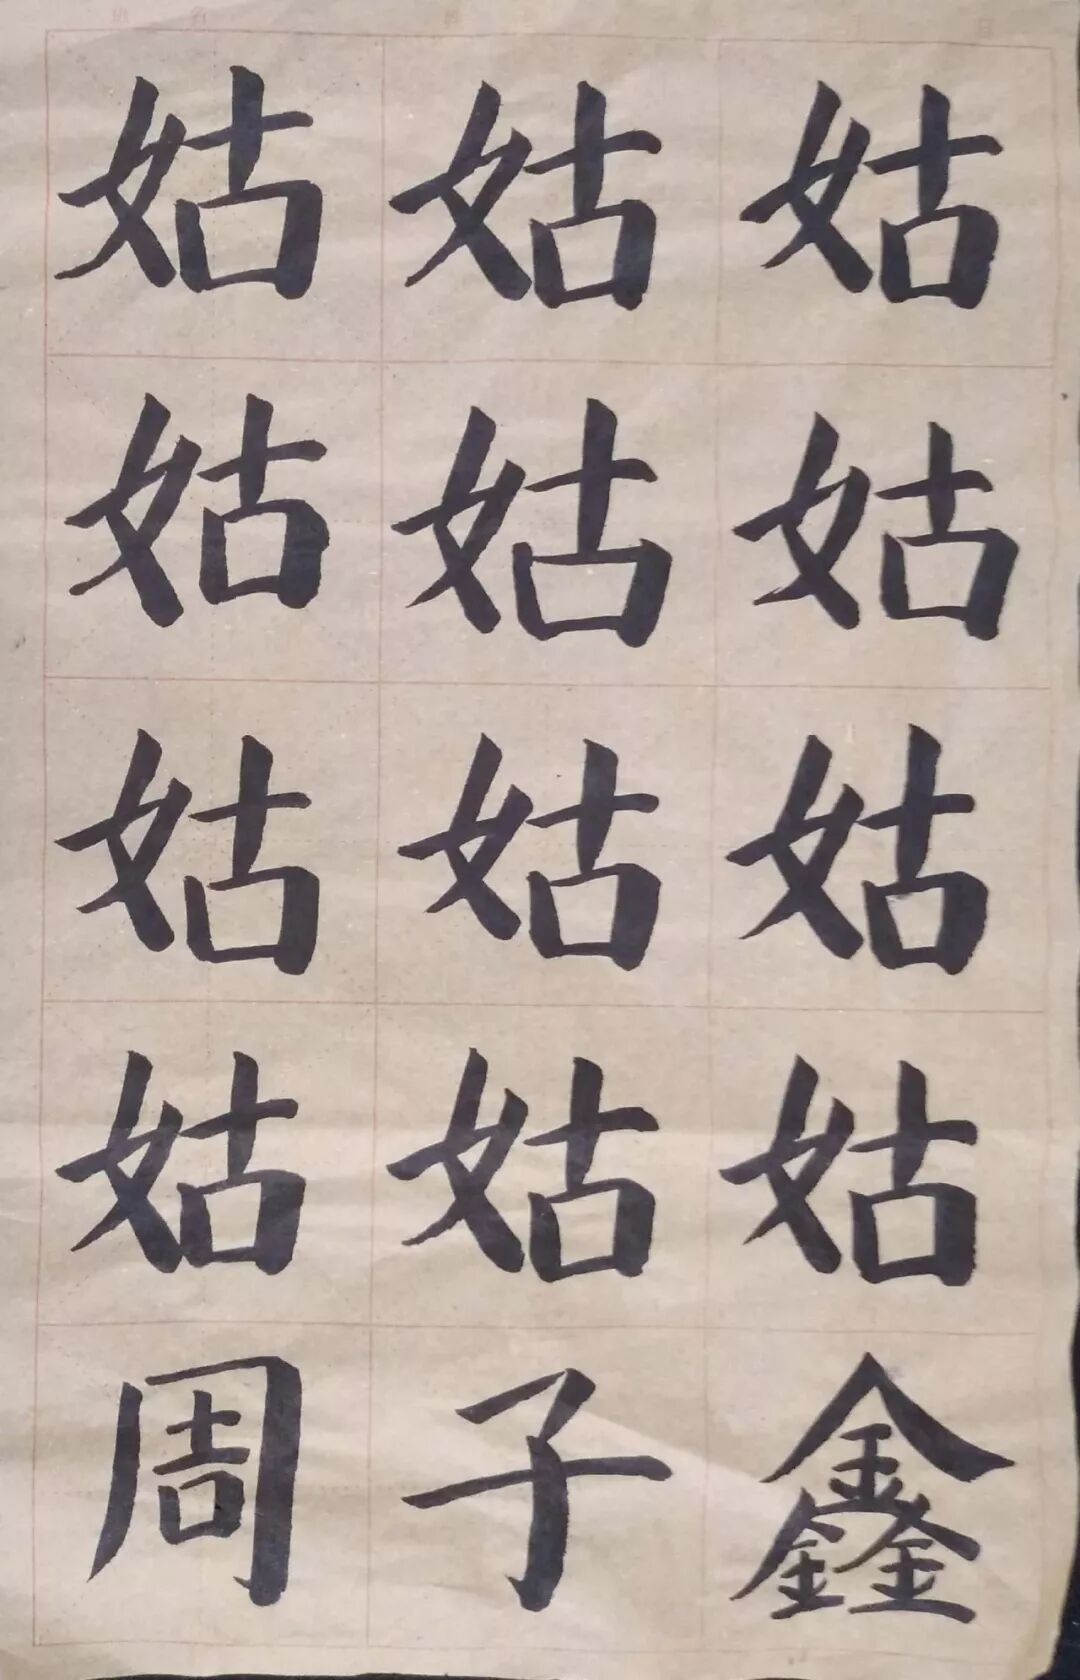 姑姑姑
姑姑姑
姑姑姑
姑姑姑
周子鑫